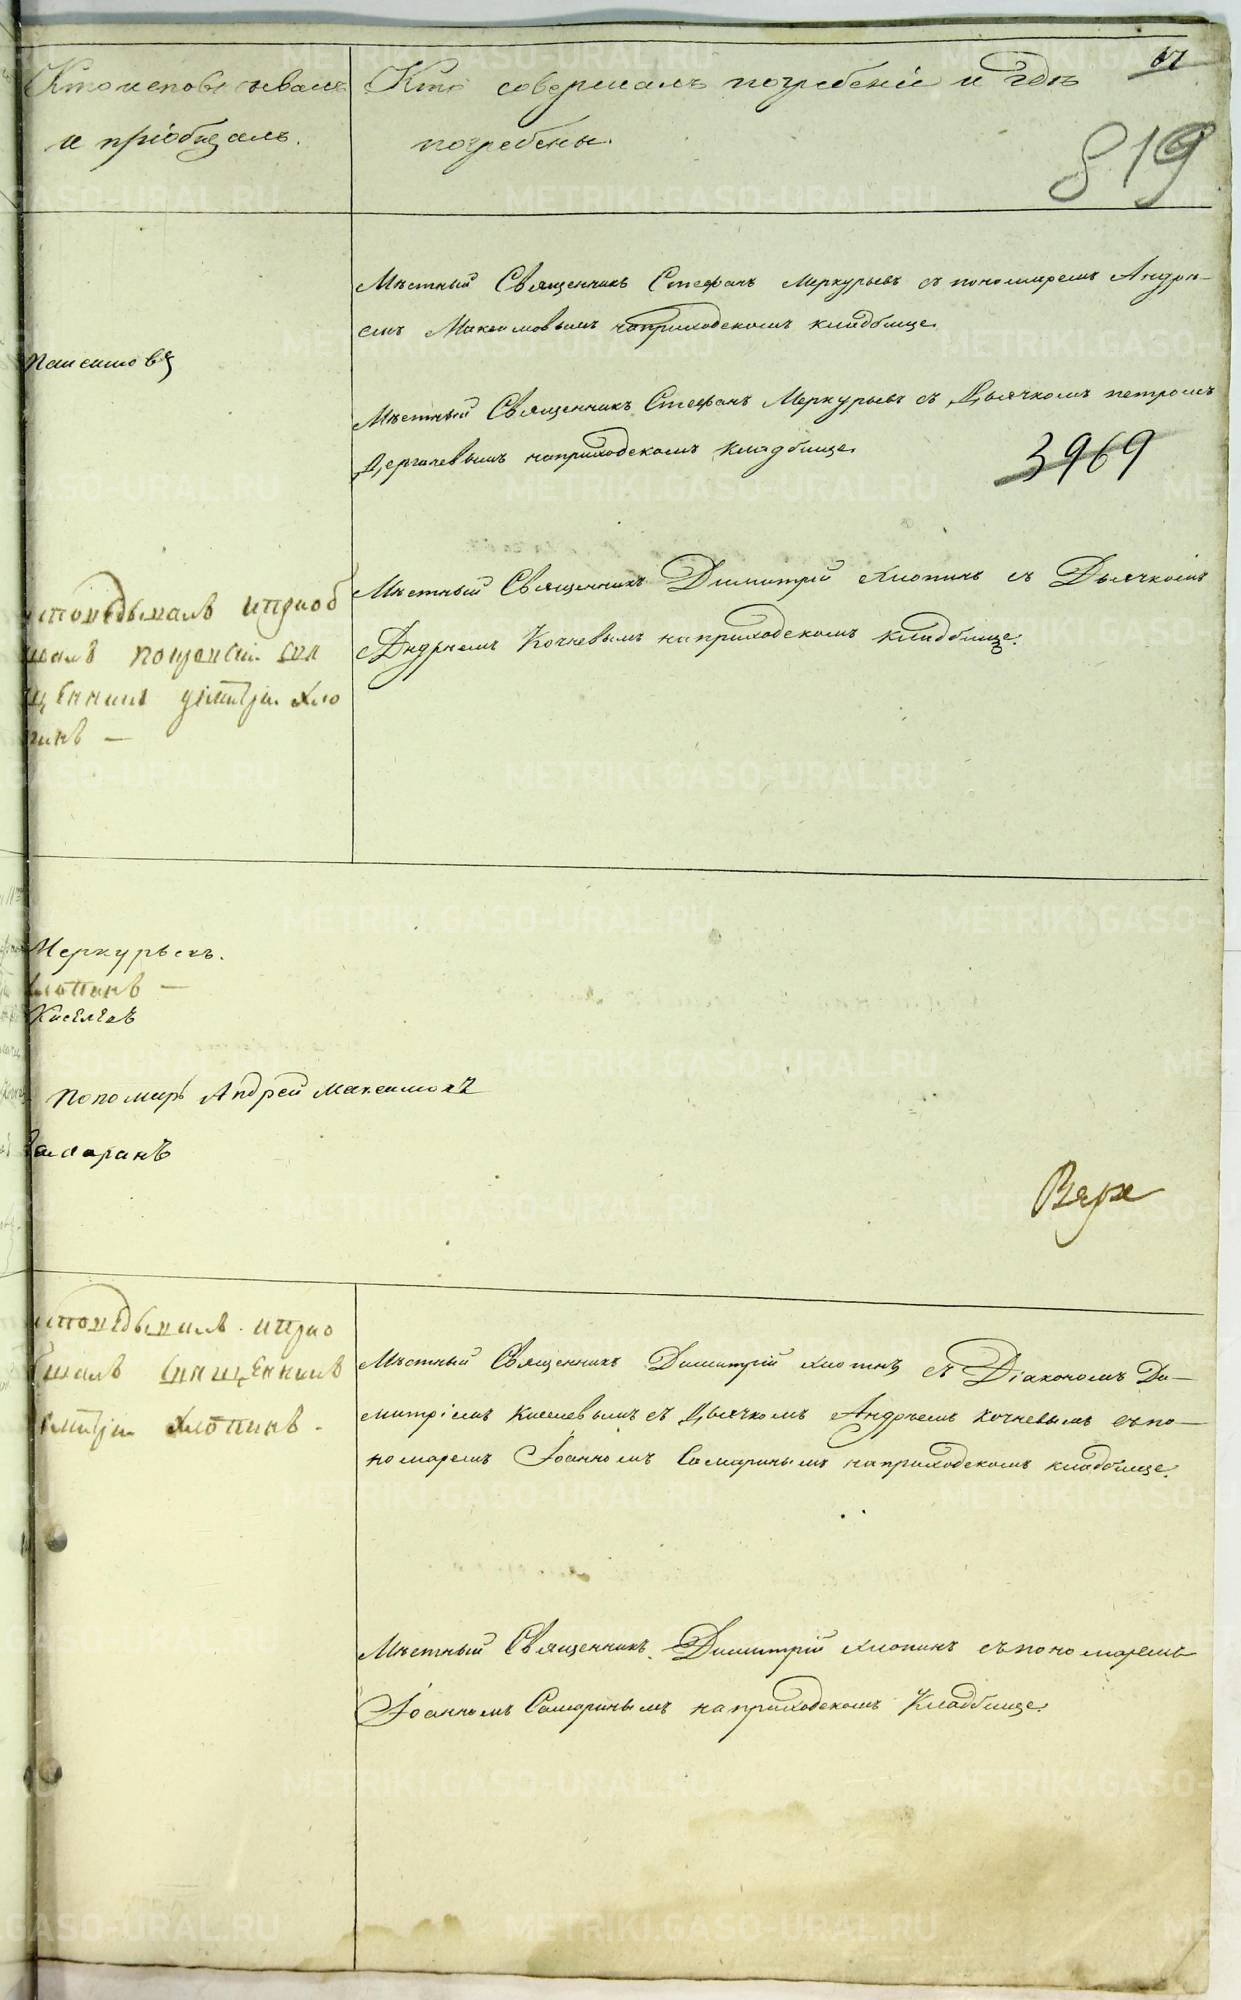 67
Кто исповедывалъ
и пріобщалъ.
Кто совершалъ погребеніе и гдѣ
погребены.
819
Мѣстный Священникъ Стефанъ Меркурьевъ съ пономаремъ Андре-
емъ Максимовымъ на приходскомъ кладбище.
Мѣстный Священникъ Стефанъ Меркурьевъ съ Дьячкомъ петромъ
на приходскомъ кладбище.
3969
исповѣдывалъ и приоб
щалъ
щенникъ димітрій Хло
пинъ —
Мѣстный Священникъ Димитрій Хлопинъ съ Дьячкомъ
Андреемъ Кочневымъ на приходскомъ кладбище.
Меркурьевъ.
Хлопинъ —
Киселевъ
пономарь Андрей Максимовъ
Самаринъ
исповѣдывалъ и прио
бщалъ священникъ
димитрій Хлопинъ -
Мѣстный Священникъ Димитрій Хлопинъ съ Діакономъ Ди-
митріемъ Киселевымъ съ Дьячкомъ Андреемъ Кочневымъ съ по-
номаремъ Іоанномъ Самаринымъ на приходскомъ кладбище.
Мѣстный Священникъ Димитрій Хлопинъ съ пономаремъ
Іоанномъ Самаринымъ на приходскомъ Кладбище.
METRIKI.GASO-URAL.RU